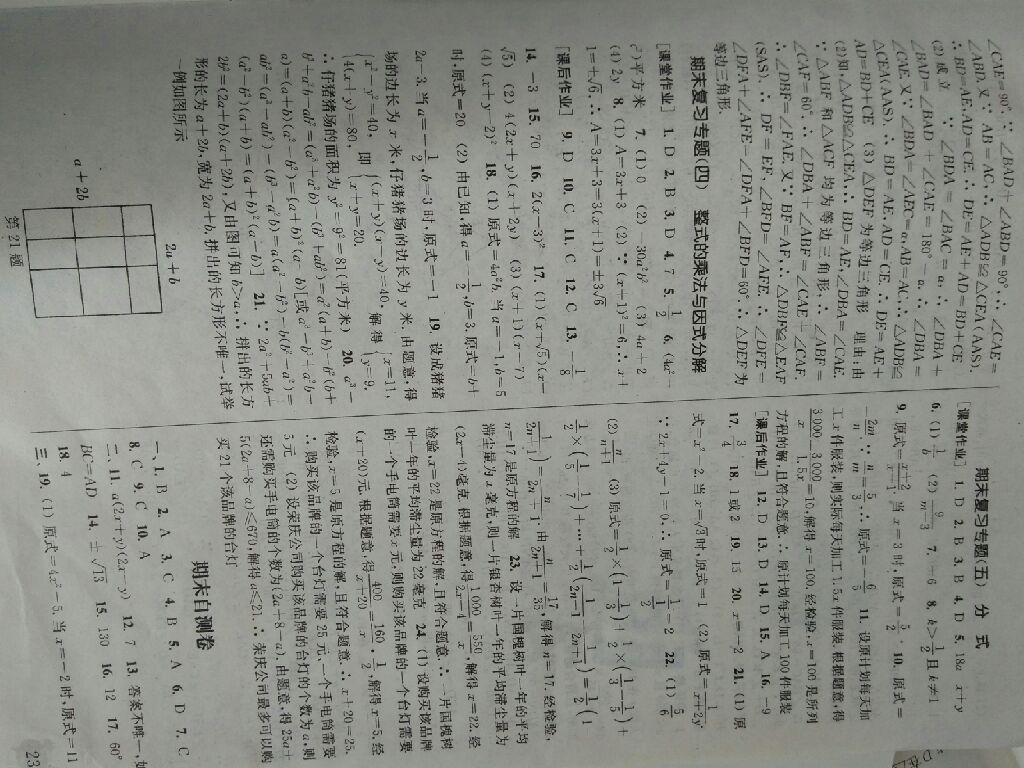 ∠CAE=90°.∵∠BAD+∠ABD=90°,∴∠CAE=
∠ABD.又∵AB=AC,∴△ADB≌△CEA(AAS),
∴BD=AE,AD=CE.∴DE=AE+AD=BD+CE
(2)成立 ∵∠BDA=∠BAC=α,∴∠DBA+
∠BAD=∠BAD+∠CAE=180°-α.∴∠DBA=
∠CAE.又∵∠BDA=∠AEC=α,AB=AC,∴△ADB≌
△CEA(AAS).∴BD=AE,AD=CE.∴DE=AE+
AD=BD+CE (3)△DEF为等边三角形 理由:由
(2)知,△ADB≌△CEA,∴BD=AE,∠DBA=∠CAE.
∵△ABF和△ACF均为等边三角形,∴∠ABF=
∠CAF=60°.∴∠DBA+∠ABF=∠CAE+∠CAF.
∴∠DBF=∠FAE.又∵BF=AF,∴△DBF≌△EAF
(SAS).∴DF=EF,∠BFD=∠AFE.∴∠DFE=
∠DFA+∠AFE=∠DFA+∠BFD=60°.∴△DEF为
等边三角形.
期末复习专题(四) 整式的乘法与因式分解
[课堂作业] 1. D 2. B 3. D 4. 7 5. 1/2 6. (4a²-
)平方米 7. (1) 0 (2) -30a²b² (3) 4a+2
(4) 2y 8. (1) A=3x+3 (2)∵(x+1)²=6,∴x+
1=±√6.∴A=3x+3=3(x+1)=±3√6
[课后作业] 9. D 10. C 11. C 12. C 13. -1/8
14. -3 15. 70 16. 2(x-3)² 17. (1)(x+√5)(x-
√5) (2) 4(2x+y)(x+2y) (3)(x+1)(x-7)
(4)(x+y-2)² 18. (1)原式=4a²b,当a=-1,b=5
时,原式=20 (2)由已知,得a=-1/2,b=3.原式=b+
2a-3.当a=-1/2,b=3时,原式=-1 19. 设成猪猪
场的边长为x米,仔猪猪场的边长为y米.由题意,得
{x²-y²=40, 4(x+y)=80, 即{(x+y)(x-y)=40, x+y=20, 解得{x=11, y=9.
∴仔猪猪场的面积为y²=9²=81(平方米) 20. a³-
b³+a²b-ab²=(a³+a²b)-(b³+ab²)=a²(a+b)-b²(b+
a)=(a+b)(a²-b²)=(a+b)²(a-b)[或a³-b³+a²b-
ab²=(a³-ab²)-(b³-a²b)=a(a²-b²)-b(b²-a²)=
(a²-b²)(a+b)=(a+b)²(a-b)] 21. ∵2a²+5ab+
2b²=(2a+b)(a+2b),又由图可知,b>a,∴拼出的长方
形的长为a+2b,宽为2a+b,拼出的长方形不唯一,试举
一例如图所示
2a+b
a+2b
第21题
期末复习专题(五) 分 式
[课堂作业] 1. D 2. B 3. B 4. D 5. 18a x+y
6. (1) 1/b (2) 9/(m-3) 7. -6 8. k>1/2且k≠1
9. 原式=(x+2)/(x-1).当x=3时,原式=5/2 10. 原式=
-2m/n.∵m/n=5/3,∴原式=-6/5 11. 设原计划每天加
工x件服装,则实际每天加工1.5x件服装.根据题意,得
3000/x-3000/1.5x=10,解得x=100.经检验,x=100是所列
方程的解,且符合题意.∴原计划每天加工100件服装
[课后作业] 12. D 13. D 14. D 15. A 16. -9
17. 3/4 18. 1或2 19. 15 20. x=-2 21. (1)原
式=x²-2.当x=√3时,原式=1 (2)原式=1/(x+2y).
∵2x+4y-1=0,∴原式=1/(1/2)=2 22. (1) 5/6
(2) n/(n+1) (3)原式=1/2×(1-1/3)+1/2×(1/3-1/5)+
1/2×(1/5-1/7)+…+1/2(1/(2n-1)-1/(2n+1))=1/2(1-
1/(2n+1))=n/(2n+1).由n/(2n+1)=17/35,解得n=17.经检验,
n=17是原方程的解 23. 设一片国槐树叶一年的平均
滞尘量为x毫克,则一片银杏树叶一年的平均滞尘量为
(2x-4)毫克.根据题意,得1000/(2x-4)=550/x,解得x=22.经
检验,x=22是原方程的解,且符合题意.∴一片国槐树
叶一年的平均滞尘量为22毫克 24. (1)设购买该品牌
的一个手电筒需要x元,则购买该品牌的一个台灯需要
(x+20)元.根据题意,得400/(x+20)=160/x×1/2,解得x=5.经
检验,x=5是原方程的解,且符合题意.∴x+20=25.
∴购买该品牌的一个台灯需要25元,一个手电筒需要
5元 (2)设荣庆公司购买该品牌的台灯的个数为a,则
还需购买手电筒的个数为(2a+8-a).由题意,得25a+
5(2a+8-a)≤670,解得a≤21.∴荣庆公司最多可以购
买21个该品牌的台灯
期末自测卷
一、1. B 2. A 3. C 4. B 5. A 6. D 7. C
8. C 9. C 10. A
二、11. a(2x+y)(2x-y) 12. 7 13. 答案不唯一,如
BC=AD 14. ±√13 15. 130 16. 12 17. 60°
18. 4
三、19. (1)原式=4x²-5.当x=-2时,原式=11
23